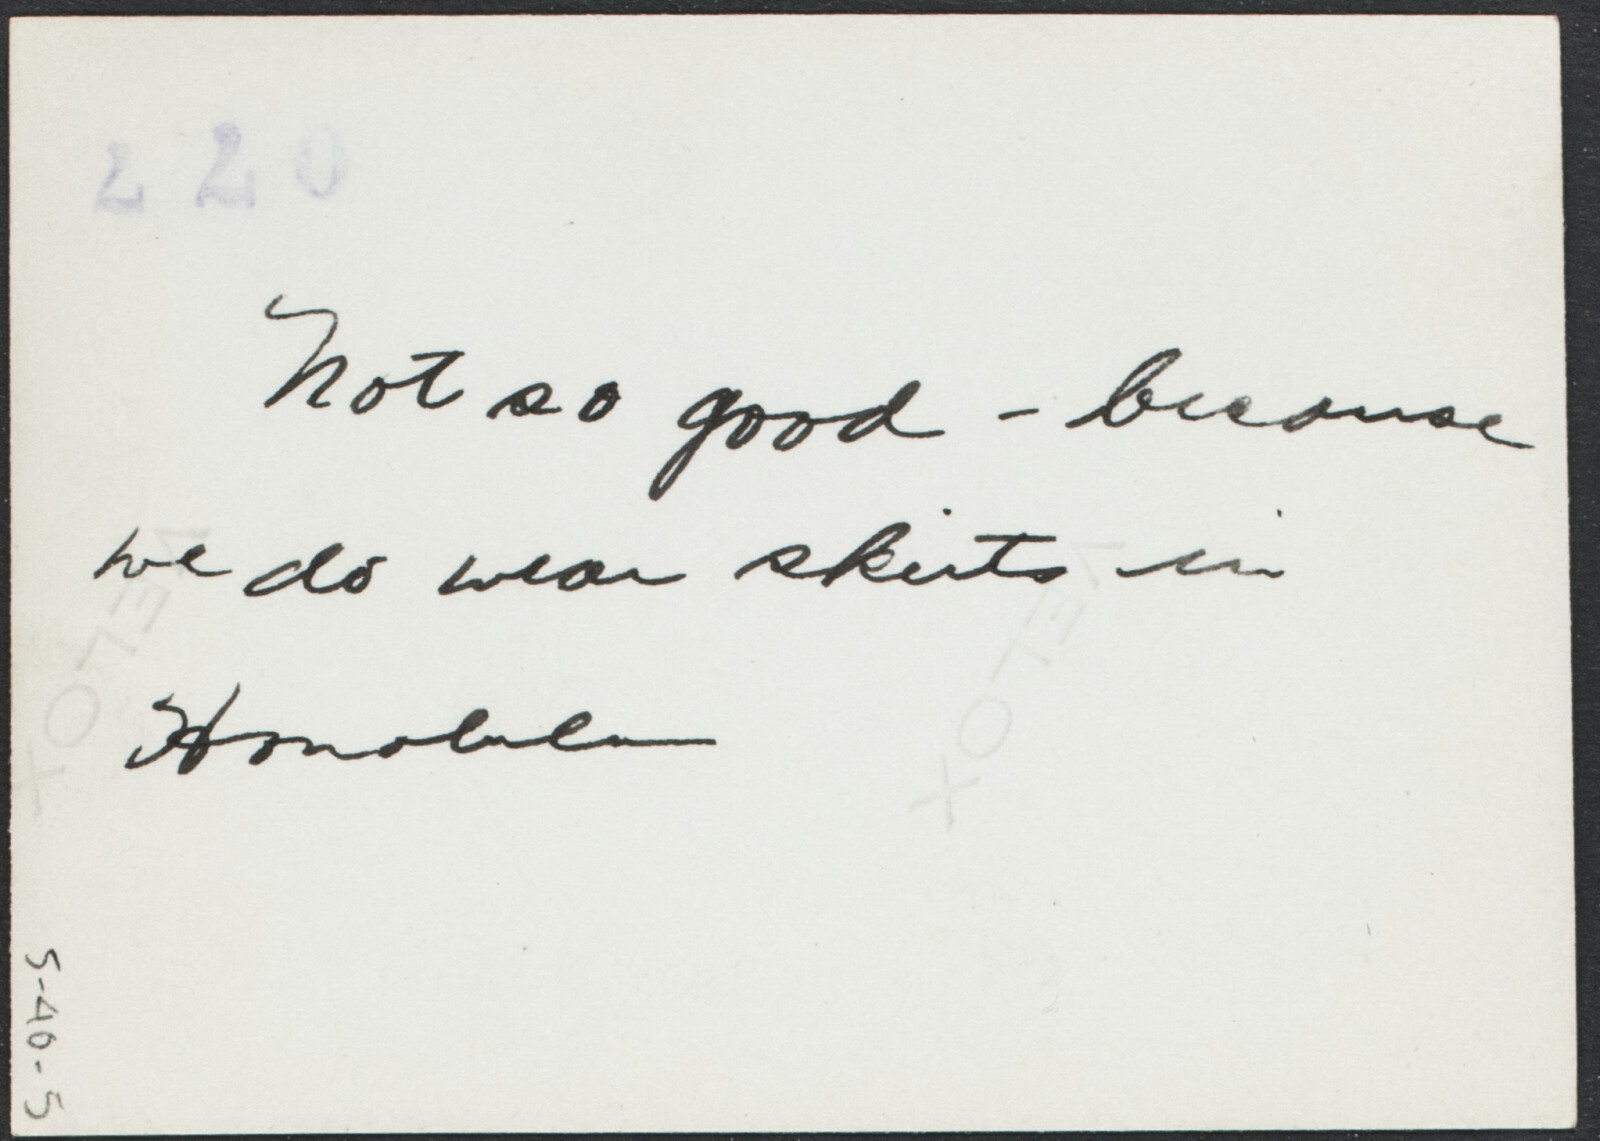 220
Not so good - because
we do wear skirts in
Honolulu
VELOX
VELOX
S-40-5